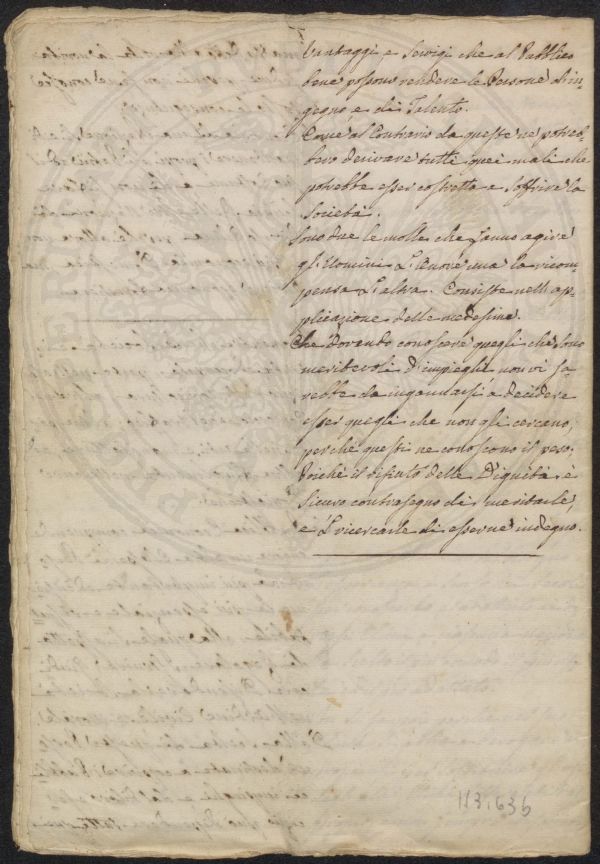 Vantaggi, e Servigi che al Pubblico
bene possono rendere le Persone d'in-
gegno, e di Talento.
Così al Contrario da queste ne potreb-
bero derivare tutti quei mali che
potrebbe esser costretta a soffrire la
Società.
Sono due le molle che fanno agire
gl'Uomini L'Onore una la ricom-
pensa L'altra. Consiste nell'ap-
plicazione delle medesime.
Che Dovendo conoscere quegli che sono
meritevoli d'impieghi non vi sa
rebbe da ingannarsi a decidere
esser quegli che non gli cercano,
perchè questi ne conoscono il peso;
Poichè il rifiuto delle Dignità è
Sicuro contrasegno di meritarle,
e L'ricercarle di esserne indegno.
113.636